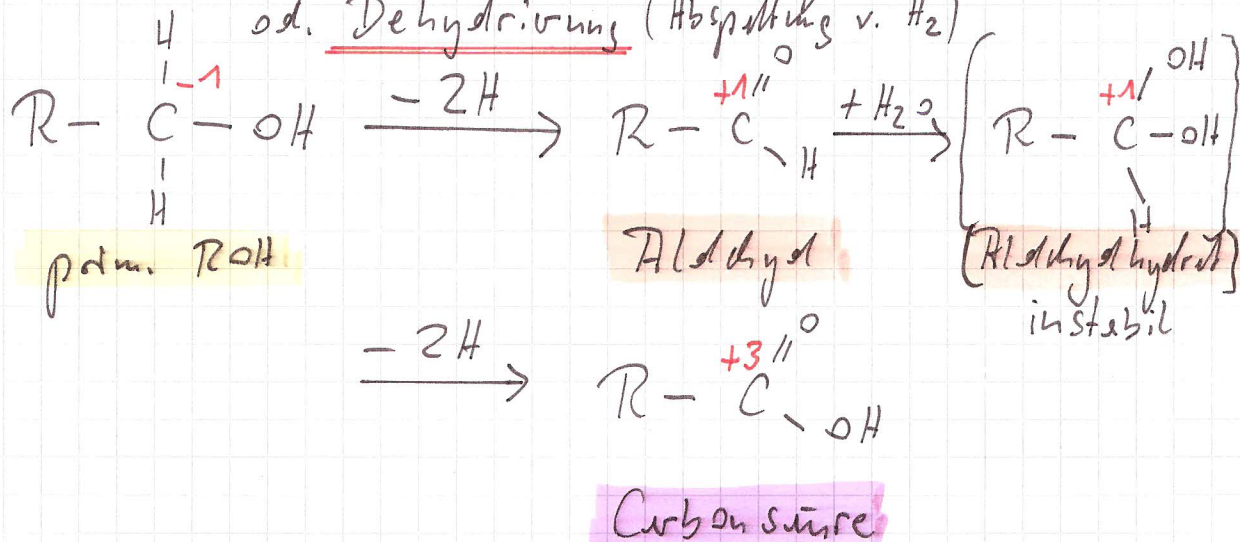 od. Dehydrierung (Abspaltung v. H₂)
H
R – C – OH
-1
H
– 2H
O
+1
R – C
H
+ H₂O
OH
+1
R – C – OH
H
prim. ROH
Aldehyd
[Aldehydhydrat]
instabil
– 2H
O
+3
R – C
OH
Carbonsäure